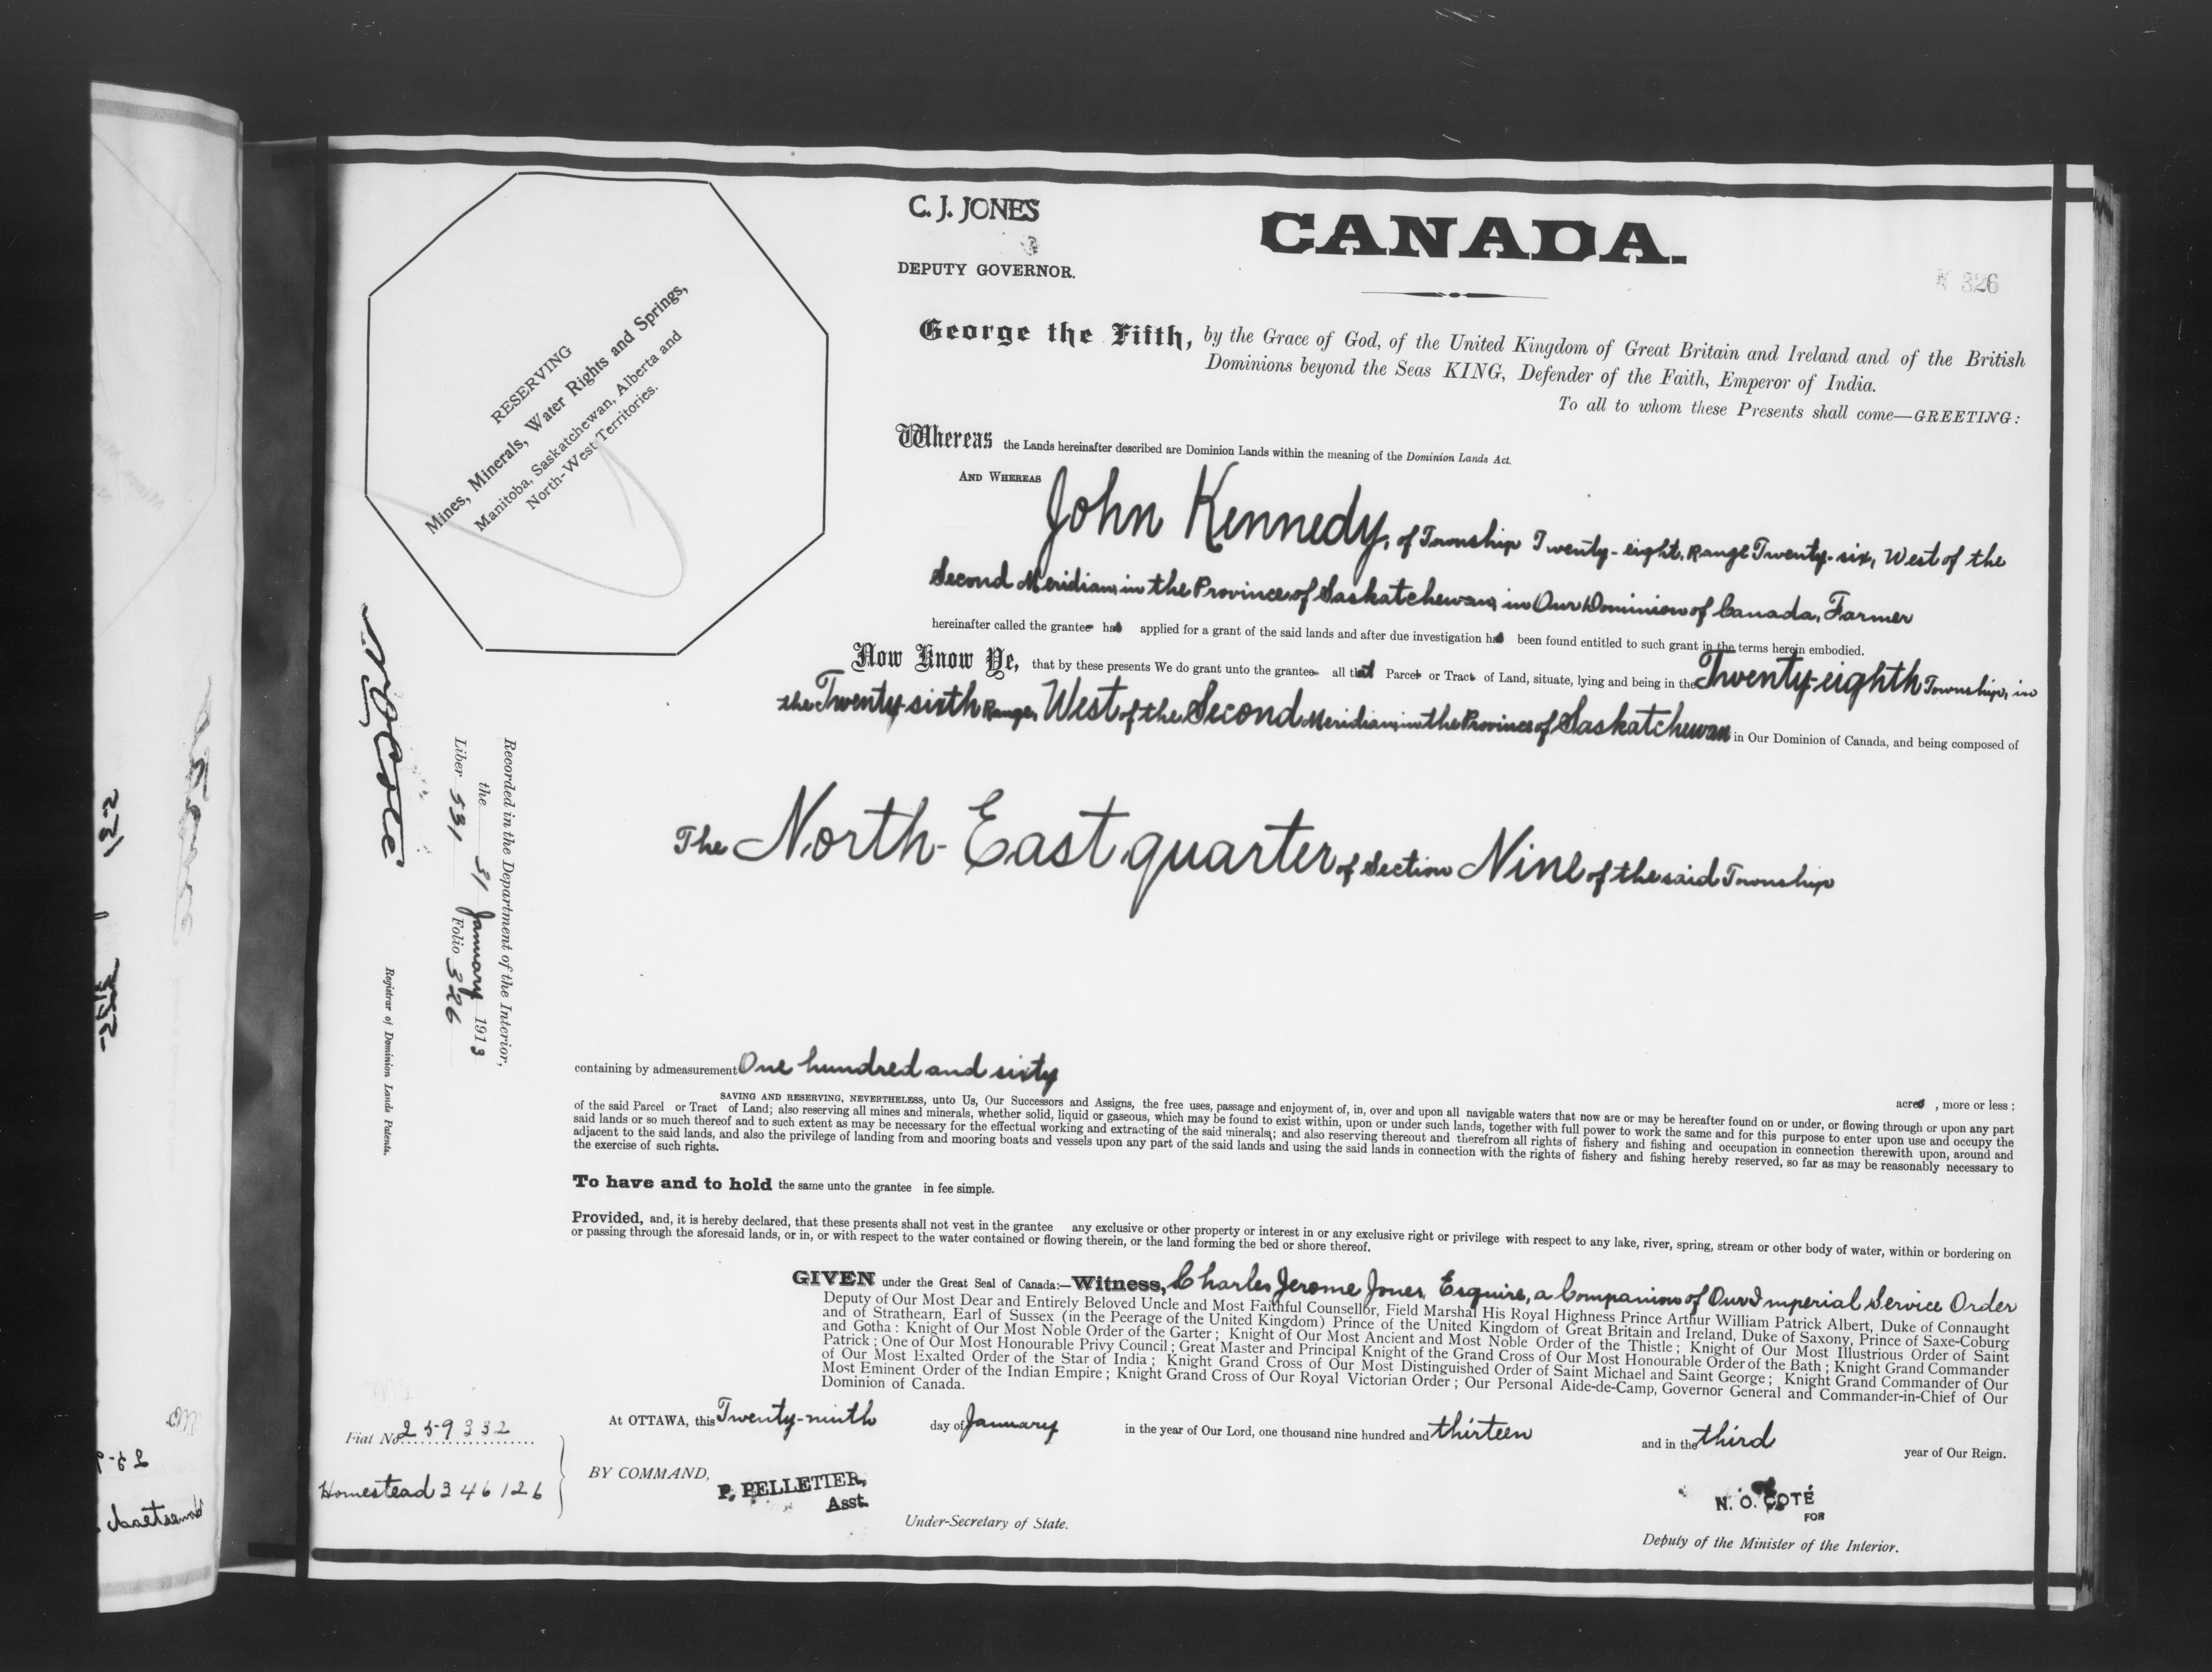 C. J. JONES
DEPUTY GOVERNOR.
CANADA.
326
RESERVING
Mines, Minerals, Water Rights and Springs,
Manitoba, Saskatchewan, Alberta and
North-West Territories.
George the Fifth, by the Grace of God, of the United Kingdom of Great Britain and Ireland and of the British
Dominions beyond the Seas KING, Defender of the Faith, Emperor of India.
To all to whom these Presents shall come—GREETING:
Whereas the Lands hereinafter described are Dominion Lands within the meaning of the Dominion Lands Act.
AND WHEREAS John Kennedy, of Township Twenty-eight, Range Twenty-six, West of the
Second Meridian, in the Province of Saskatchewan, in Our Dominion of Canada, Farmer
hereinafter called the grantee has applied for a grant of the said lands and after due investigation has been found entitled to such grant in the terms herein embodied.
Now Know Ye, that by these presents We do grant unto the grantee all that Parcel or Tract of Land, situate, lying and being in the Twenty-eighth Township, in
the Twenty-sixth Range, West of the Second Meridian, in the Province of Saskatchewan in Our Dominion of Canada, and being composed of
The North-East quarter of Section Nine of the said Township
N O Coté
Registrar of Dominion Lands Patents.
Recorded in the Department of the Interior,
the 31 January 1913
Liber 531 Folio 326
containing by admeasurement One hundred and sixty acres, more or less;
SAVING AND RESERVING, NEVERTHELESS, unto Us, Our Successors and Assigns, the free uses, passage and enjoyment of, in, over and upon all navigable waters that now are or may be hereafter found on or under, or flowing through or upon any part
of the said Parcel or Tract of Land; also reserving all mines and minerals, whether solid, liquid or gaseous, which may be found to exist within, upon or under such lands, together with full power to work the same and for this purpose to enter upon use and occupy the
said lands or so much thereof and to such extent as may be necessary for the effectual working and extracting of the said minerals; and also reserving thereout and therefrom all rights of fishery and fishing and occupation in connection therewith upon, around and
adjacent to the said lands, and also the privilege of landing from and mooring boats and vessels upon any part of the said lands and using the said lands in connection with the rights of fishery and fishing hereby reserved, so far as may be reasonably necessary to
the exercise of such rights.
To have and to hold the same unto the grantee in fee simple.
Provided, and, it is hereby declared, that these presents shall not vest in the grantee any exclusive or other property or interest in or any exclusive right or privilege with respect to any lake, river, spring, stream or other body of water, within or bordering on
or passing through the aforesaid lands, or in, or with respect to the water contained or flowing therein, or the land forming the bed or shore thereof.
GIVEN under the Great Seal of Canada:—Witness, Charles Jerome Jones, Esquire, a Companion of Our Imperial Service Order
Deputy of Our Most Dear and Entirely Beloved Uncle and Most Faithful Counsellor, Field Marshal His Royal Highness Prince Arthur William Patrick Albert, Duke of Connaught
and of Strathearn, Earl of Sussex (in the Peerage of the United Kingdom) Prince of the United Kingdom of Great Britain and Ireland, Duke of Saxony, Prince of Saxe-Coburg
and Gotha: Knight of Our Most Noble Order of the Garter; Knight of Our Most Ancient and Most Noble Order of the Thistle; Knight of Our Most Illustrious Order of Saint
Patrick; One of Our Most Honourable Privy Council; Great Master and Principal Knight of the Grand Cross of Our Most Honourable Order of the Bath; Knight Grand Commander
of Our Most Exalted Order of the Star of India; Knight Grand Cross of Our Most Distinguished Order of Saint Michael and Saint George; Knight Grand Commander of Our
Most Eminent Order of the Indian Empire; Knight Grand Cross of Our Royal Victorian Order; Our Personal Aide-de-Camp, Governor General and Commander-in-Chief of Our
Dominion of Canada.
At OTTAWA, this Twenty-ninth day of January in the year of Our Lord, one thousand nine hundred and thirteen and in the third year of Our Reign.
Fiat No. 259332
Homestead 346126
BY COMMAND,
P. PELLETIER,
Asst.
Under-Secretary of State.
N. O. COTÉ
FOR
Deputy of the Minister of the Interior.